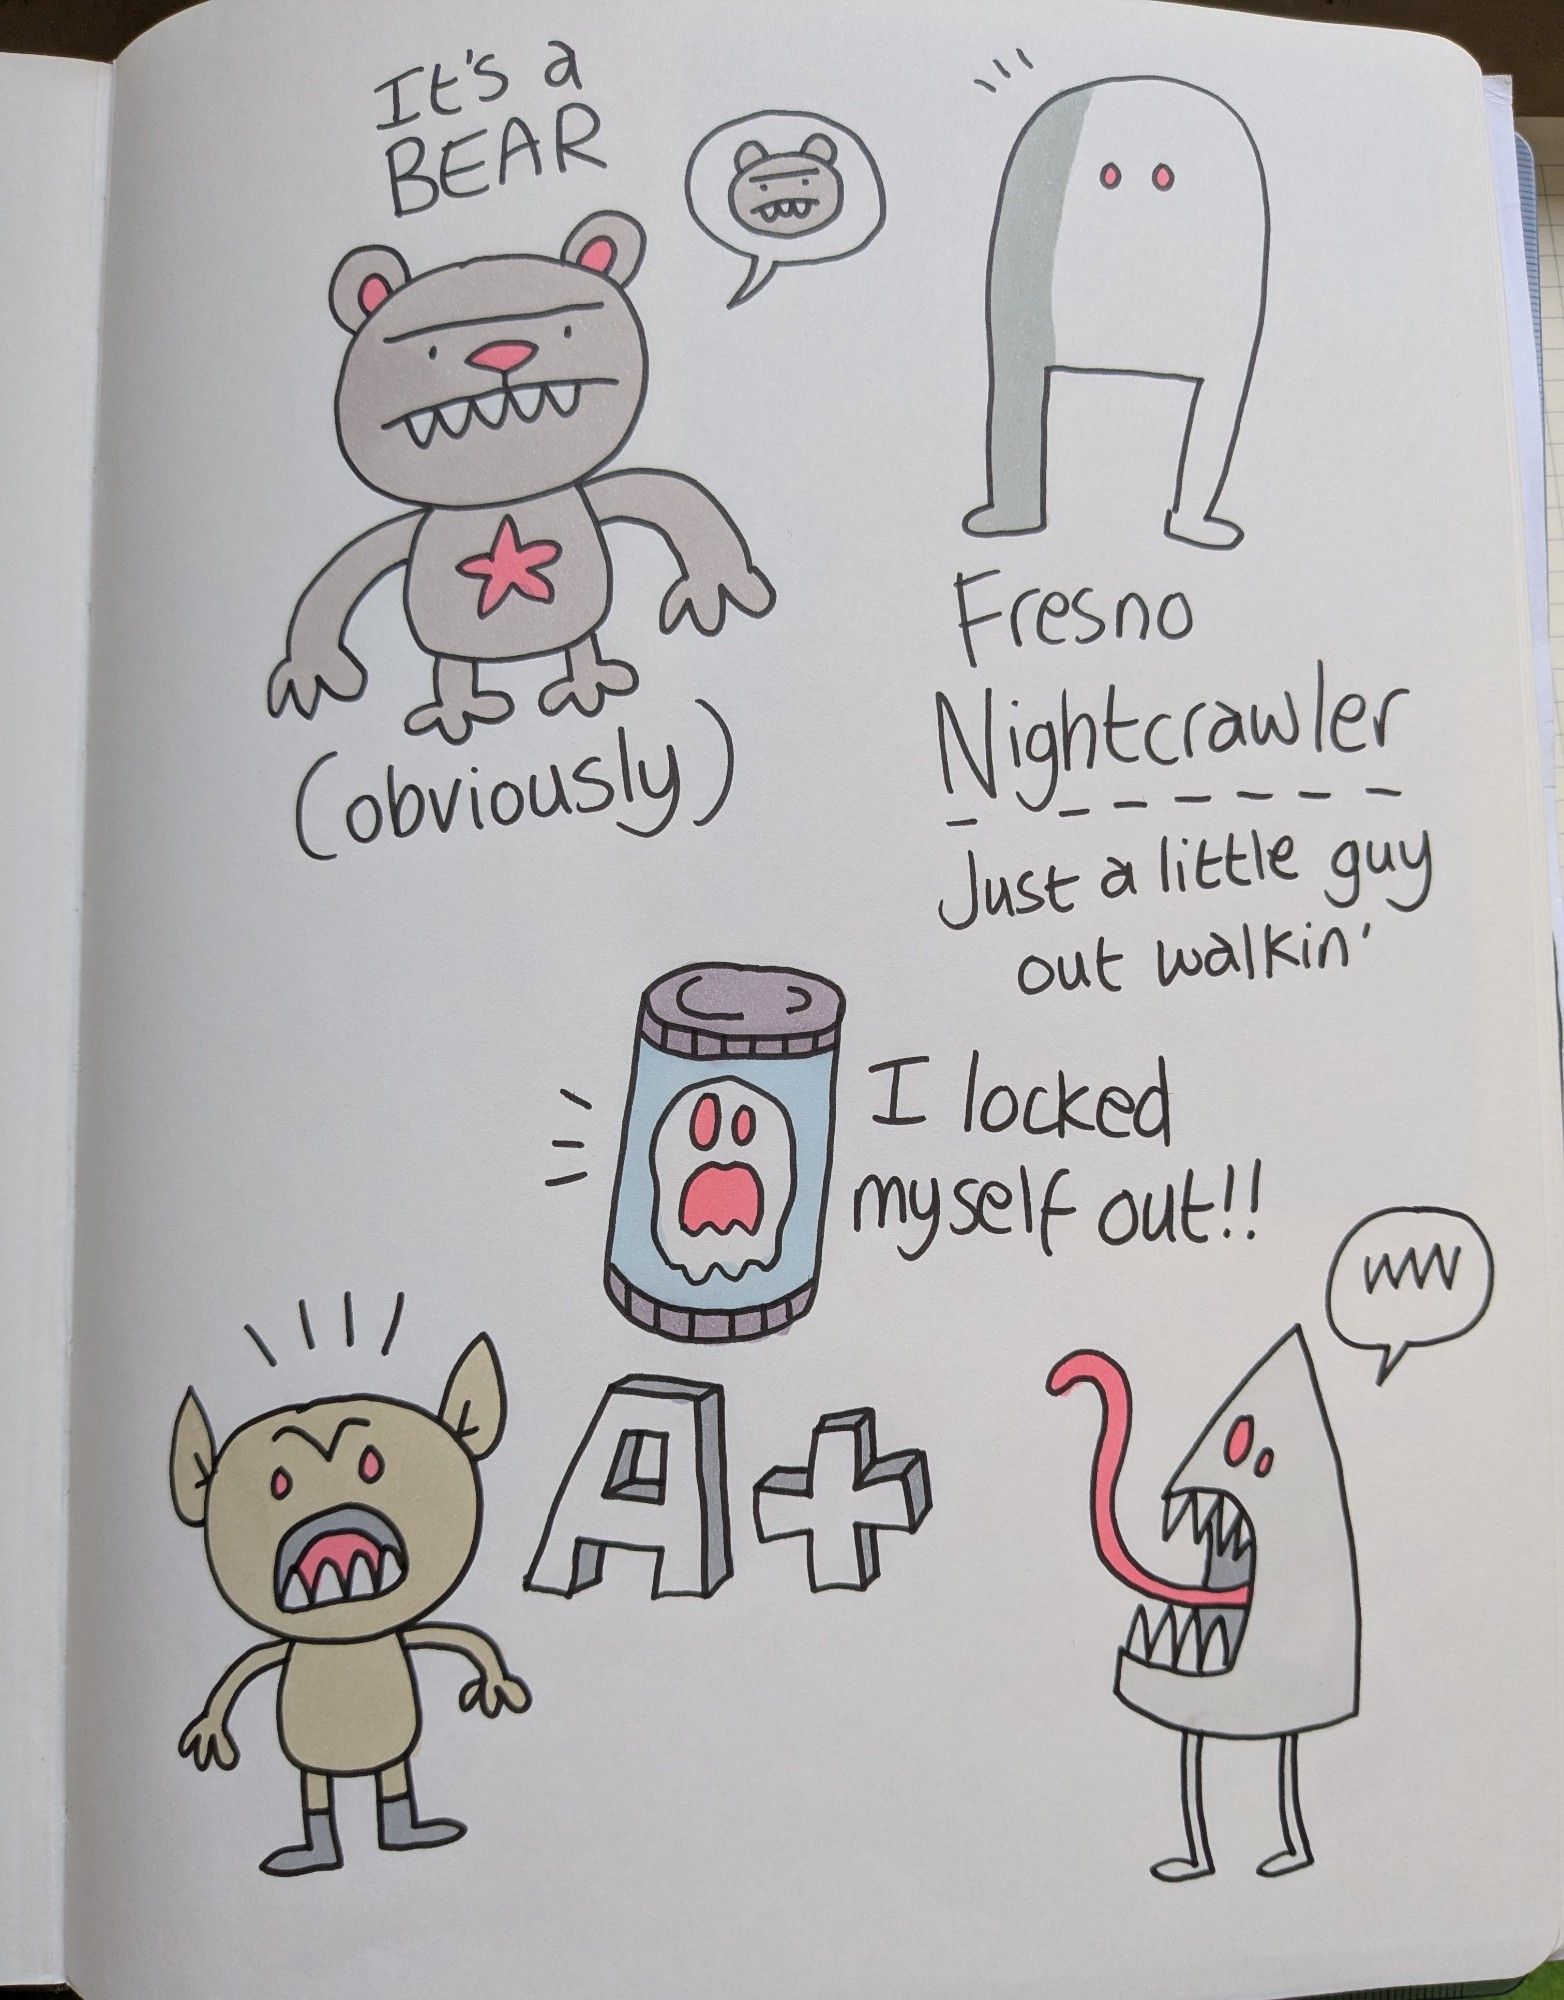 It's a
BEAR
(obviously)
Fresno
Nightcrawler
Just a little guy
out walkin'
I locked
myself out!!
A+